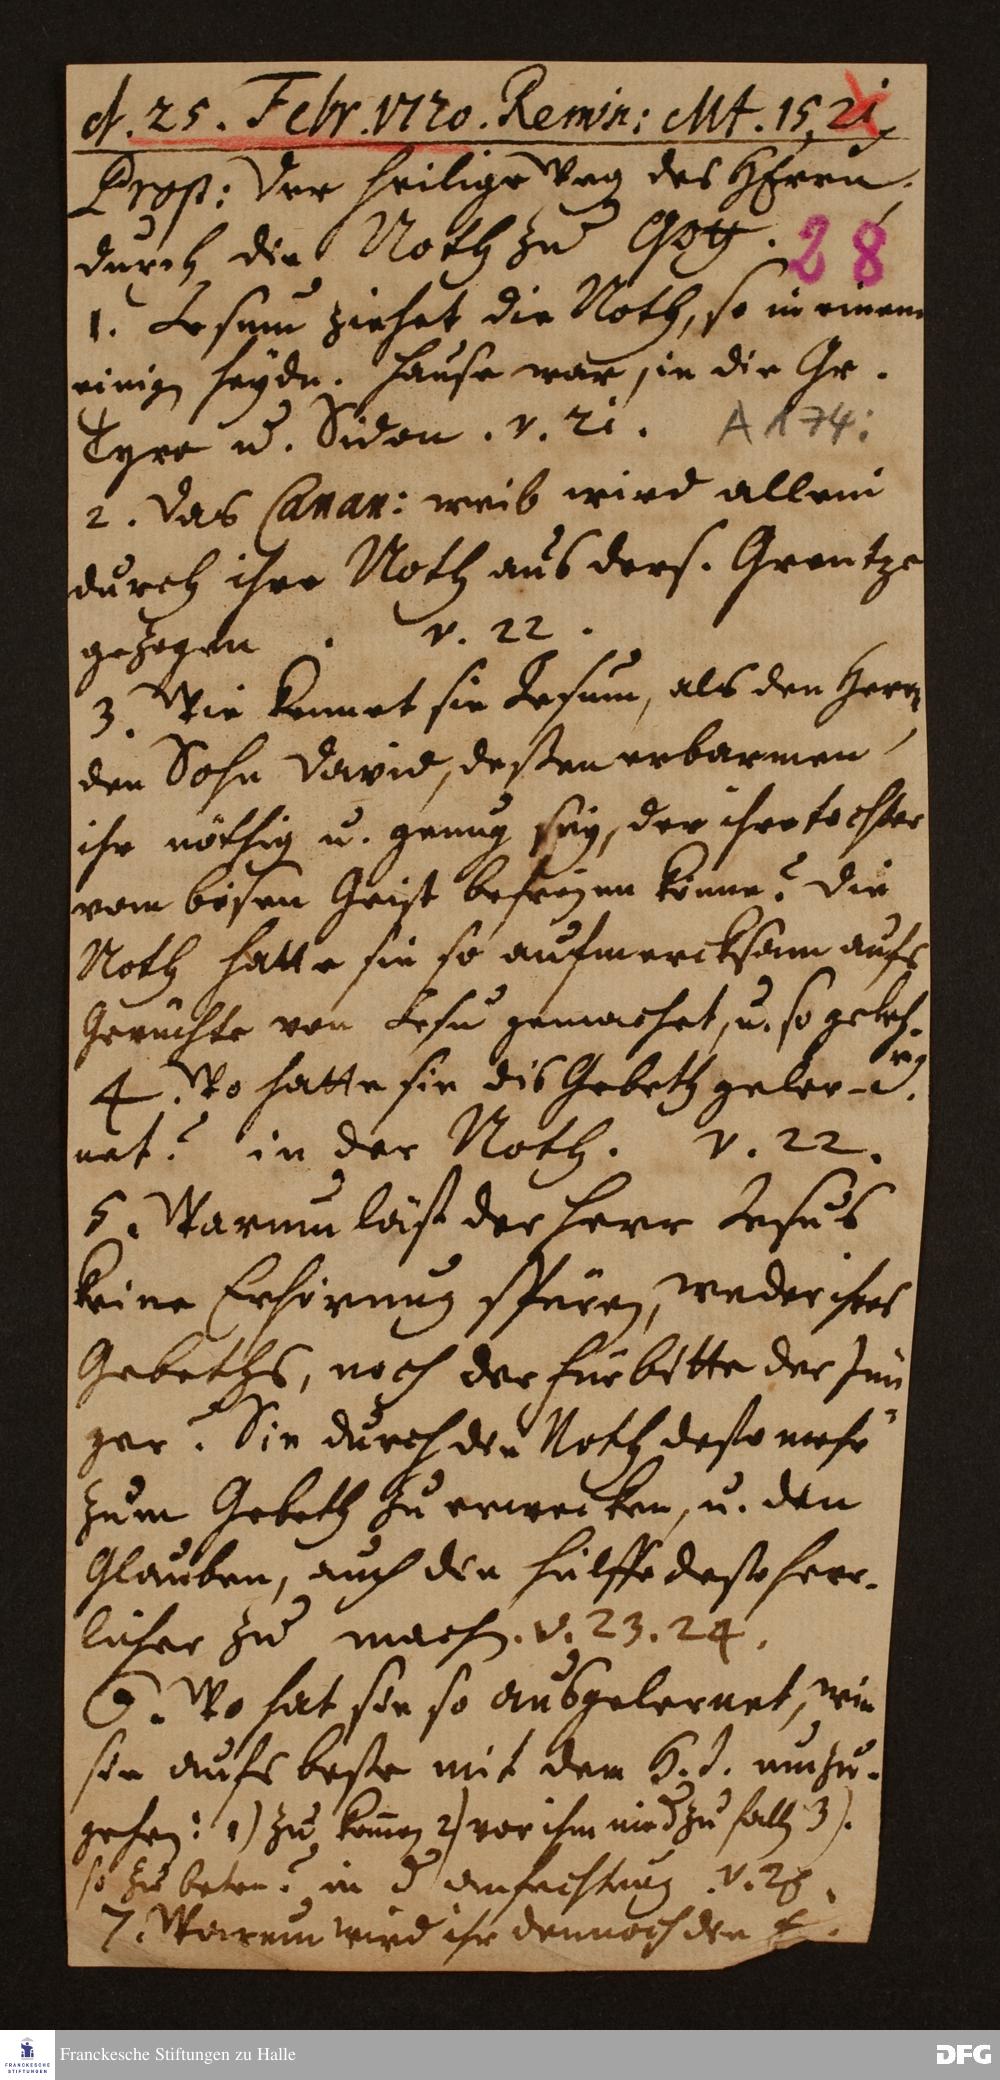 d. 25. Febr. 1720. Remin: Mt. 15, 21,
Prop: Der heilige Weg des HErrn,
durch die Noth zu Gott.
28
1. Jesum ziehet die Noth, so in einem
einign heydn. Hause war, in die Gr.
Tyro u. Sidon. v. 21.
A 174:
2. Das Canan: weib wird allein
durch ihre Noth aus ders. Grentze
gezogen. v. 22.
3. Wie kennet sie Jesum, als den Herrn
den Sohn David, deßen erbarmen
ihr nöthig u. genug sey, der ihre tochter
vom bösen Geist befreyen könne? Die
Noth hatte sie so aufmercksam aufs
Gerüchte von Jesu gemachet, u. so
4. Wo hatte sie dis Gebeth geler-
net? in der Noth. v. 22.
5. Warum läst der Herr Jesus
keine Erhörung spüren, weder ihres
Gebeths, noch der fürbitte der Jün
ger? Sie durch die Noth desto mehr
zum Gebeth zu erwecken, u. den
Glauben, auch die hülffe desto herr-
licher zu machn. v. 23. 24.
6. Wo hat sie so ausgelernet, wie
sie aufs beste mit dem H. J. umzu-
gehen: 1) zu komen 2) vor ihm nied zu falln 3).
so zu beten? in d anfechtung. v. 25.
7. Warum wird ihr dennoch die
Franckesche Stiftungen zu Halle
FRANCKESCHE
STIFTUNGEN
DFG